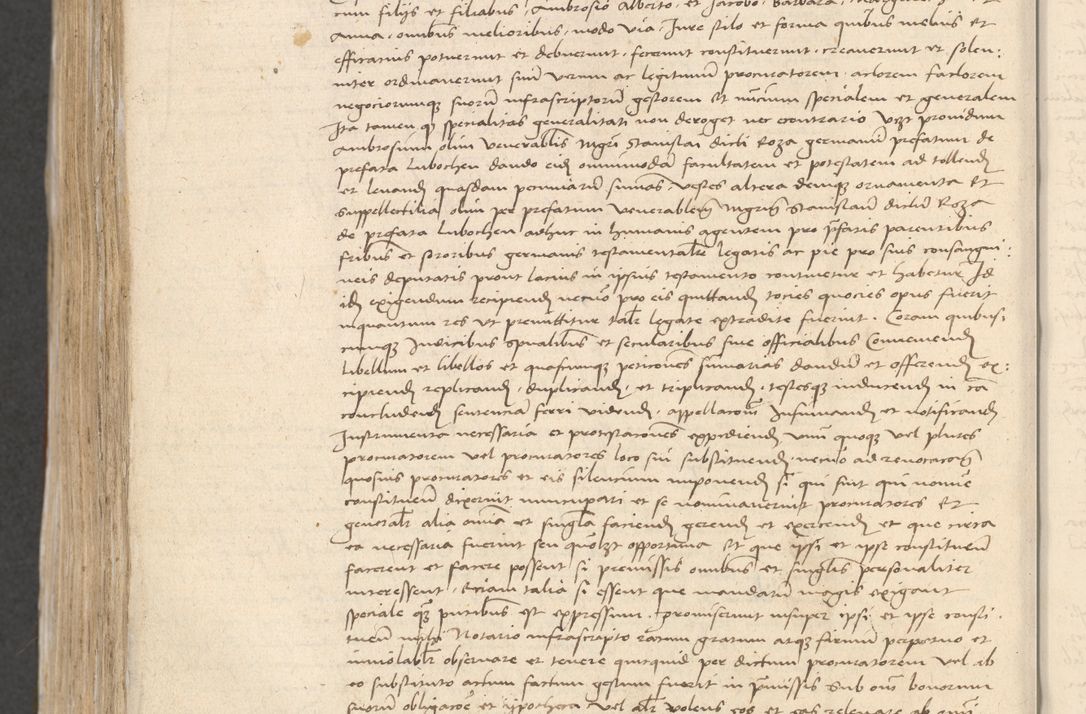 cum filijs et filiabus Ambrosio Alberto et Jacobo Barbara
Anna omnibus melioribus modo via Jure stilo et forma quibus melius et
efficatius potuerunt et debuerunt fecerunt constituerunt creaverunt et solen:
niter ordinaverunt suum verum ac legitimum procuratorem actorem factorem
negociorumque suorum infrascriptorum gestorem et nuncium specialem et generalem
Ita tamen quod specialitas generalitati non deroget nec econtrario vczt providum
Ambrosium olim venerablis Mgri Stanislai dicti Roza germanum prefatum de
prefata Lubochen dando eidem omnimodam facultatem et potestatem ad tollendum
et levandum quasdam pecuniarum summas vestes altera denique ornamenta et
suppellectilia olim per prefatum venerabilem Mgrum Stanislaum dictum Roza
de prefata Lubochen adhuc in humanis agentem pro prefatis parentibus
fribus et sororibus germanis testamentaliter legatis ac pie pro suis consangui:
neis deputatis prout latius in ipsius testamento continetur et habetur Id
idem exigendum recipiendum necnon pro eis quittandum tocies quocies opus fuerit
inquantum res ut premittitur taliter legate extradite fuerint. Coram quibus:
cunque Judicibus spiritualibus et secularibus sive officialibus Conveniendum
libellum et libellos et quascunque peticiones sumarias dandum et offerendum ex:
cipiendum replicandum, duplicandum, et triplicandum, testesque inducendum in causa
concludendum sentenciam ferri videndum, appellacionem Insinuandum et notificandum
Instrumenta necessaria et protestaciones expediendum unum quoque vel plures
procuratorem vel procuratores loco sui substituendum necnon ad revocacionem
quosvis procuratores et eis silencium imponendum si qui sint qui nomine
constituentium dixerint nuncupari et se nominaverint procuratores Et
generaliter alia omnia et singula faciendum gerendum et exercendum et que circa
ea necessaria fuerint seu quomodolibet opportuna Et que ipsi et ipse constituentes
facerent et facere possent si premissis omnibus et singulis personaliter
interessent, Eciam talia si essent que mandatum magis exigant
speciale quam presentibus est expressum. promiserunt insuper ipsi et ipse consti:
tuentes mihi Notario infrascripto ratum gratum atque firmum perpetuo et
inviolabiliter observare et tenere quicquid per dictum procuratorem vel ab
eo substituto actum factum gestum fuerit in premissis sub omnium bonorum
suorum obligacione et ypotheca vel aliter volens eos et eas relevare ab omni